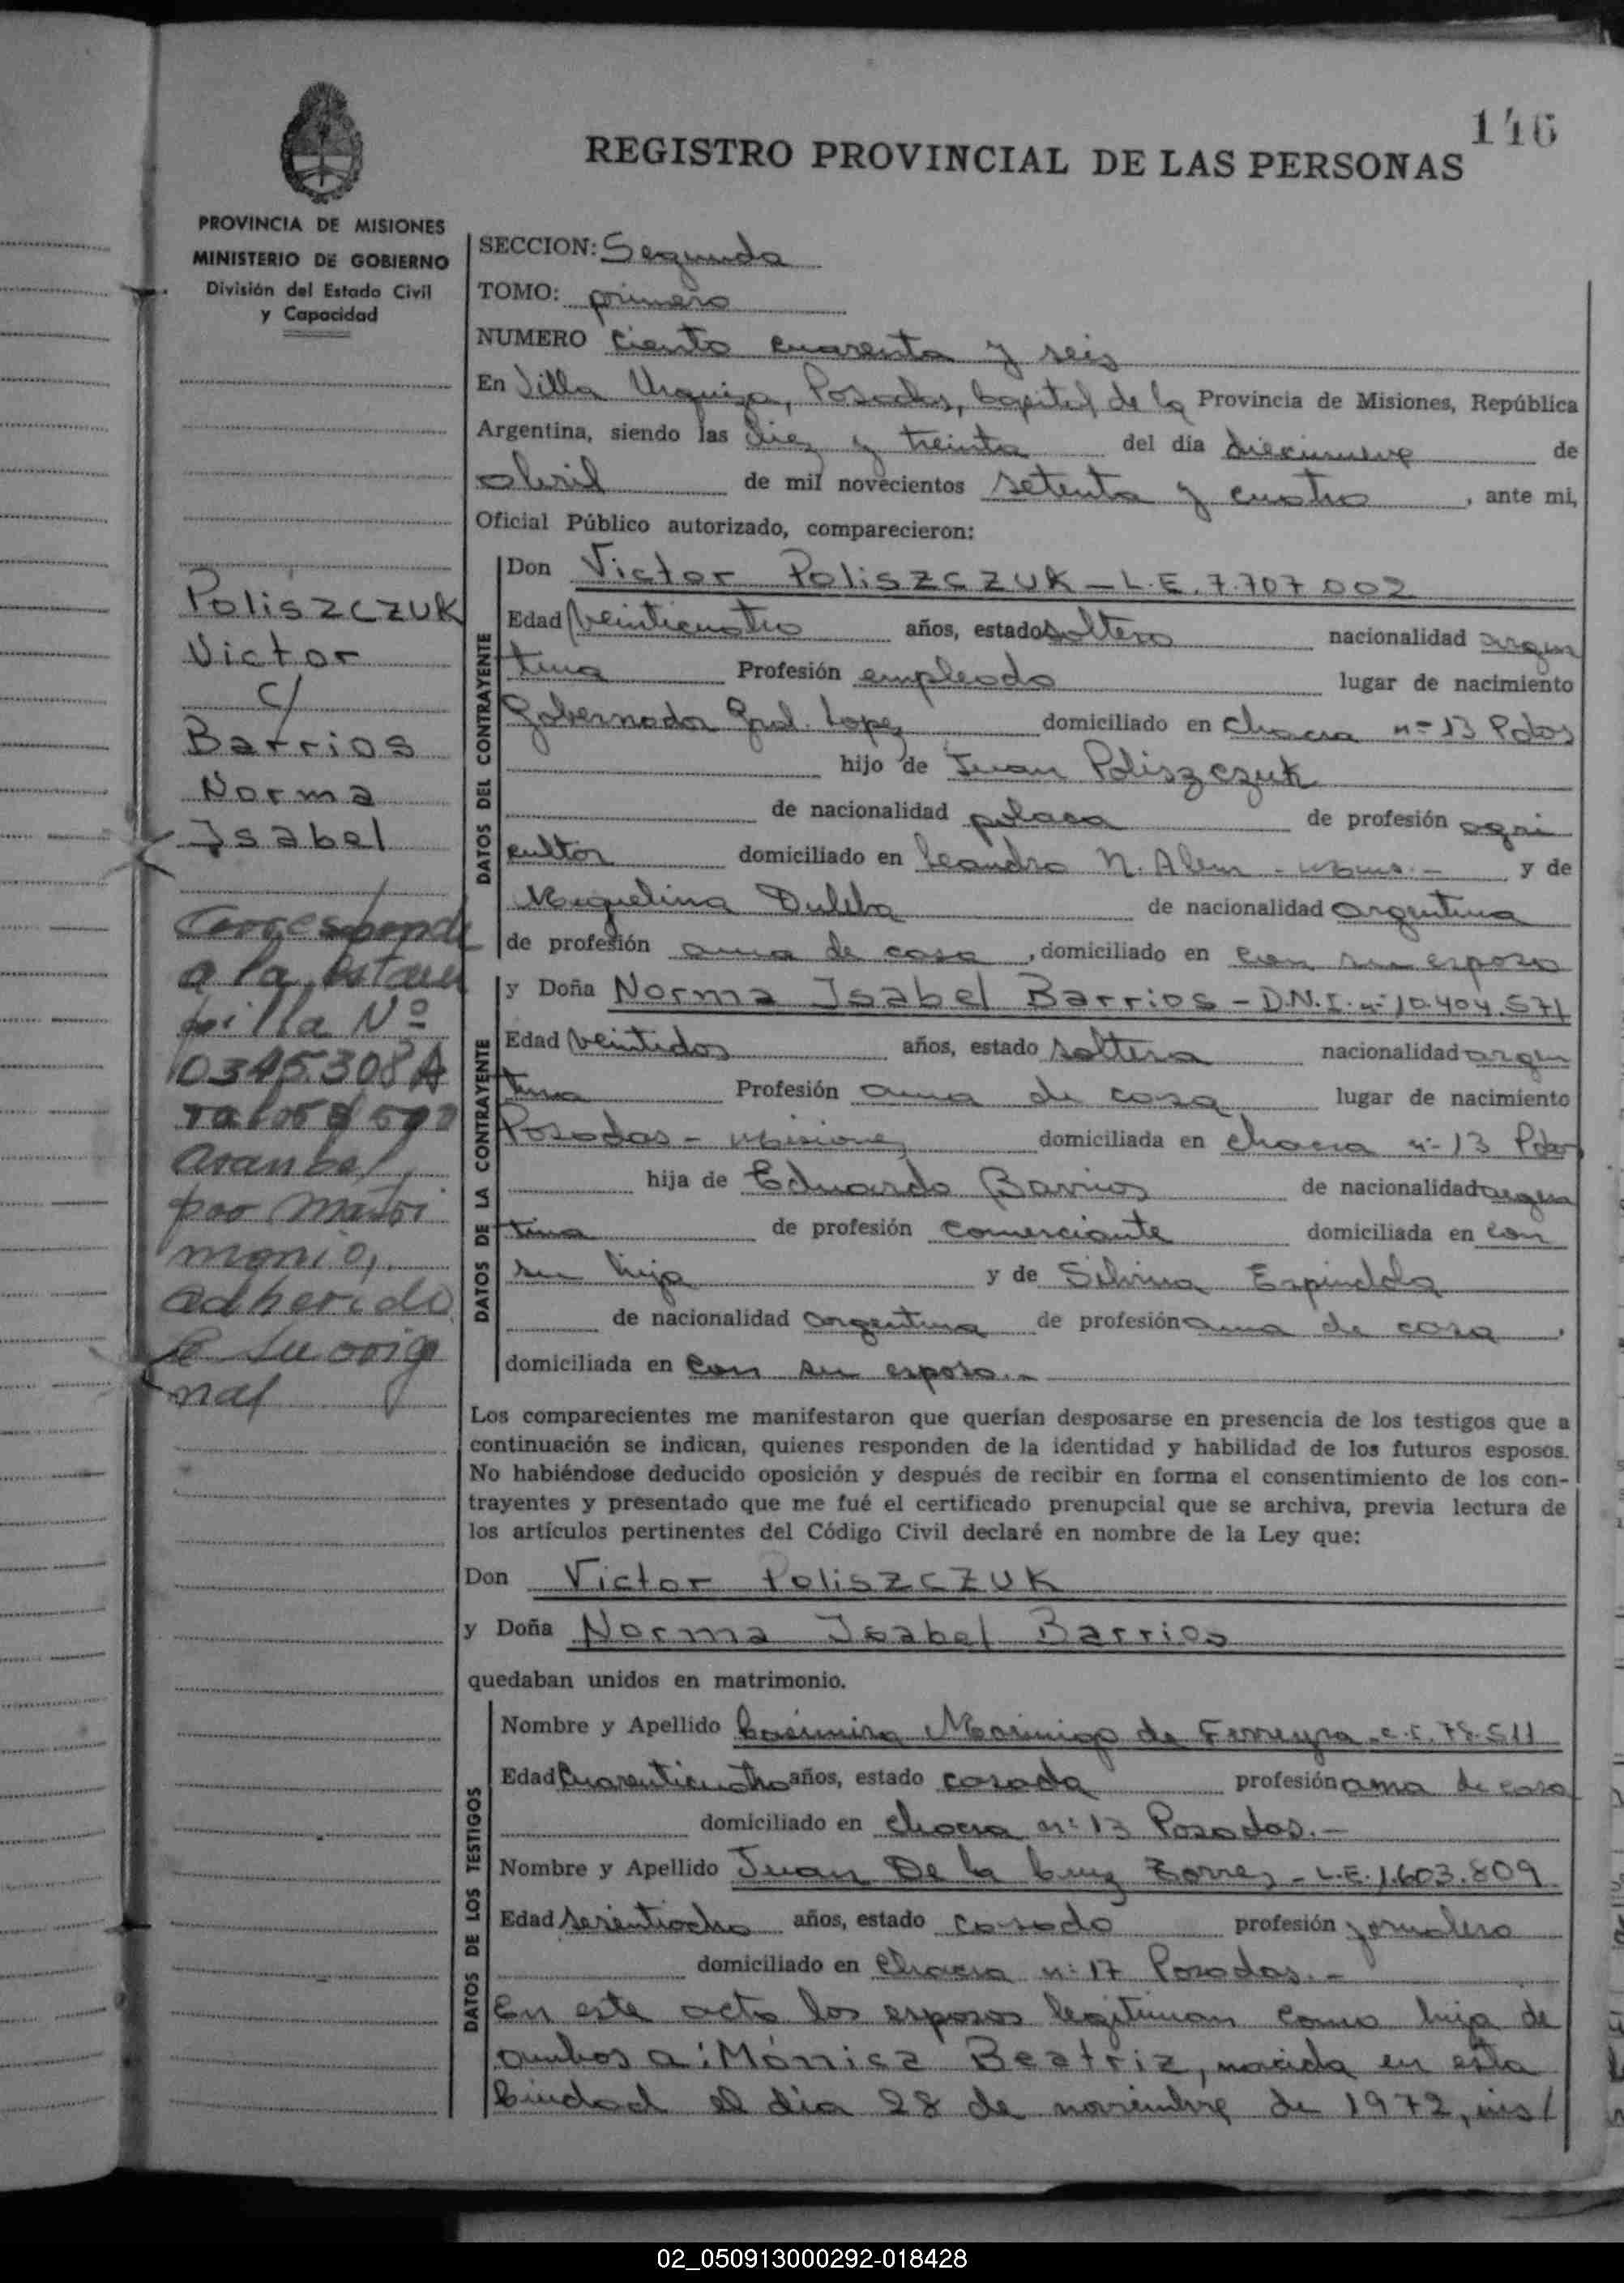 146
REGISTRO PROVINCIAL DE LAS PERSONAS
PROVINCIA DE MISIONES
MINISTERIO DE GOBIERNO
División del Estado Civil
y Capacidad
Poliszczuk
Victor
c/
Barrios
Norma
Isabel
Corresponde
a la estam
pilla Nº
0345308 A
valor $ 500
arancel
por matri
monio,
adherido
a su origi
nal
SECCION: Segunda
TOMO: primero
NUMERO ciento cuarenta y seis
En Villa Urquiza, Posadas, Capital de la Provincia de Misiones, República
Argentina, siendo las diez y treinta del día diecinueve de
abril de mil novecientos setenta y cuatro, ante mi,
Oficial Público autorizado, comparecieron:
DATOS DEL CONTRAYENTE
Don Victor Poliszczuk - L.E. 7.707.002
Edad veinticuatro años, estado soltero nacionalidad argen
tina Profesión empleado lugar de nacimiento
Gobernador Gral. Lopez domiciliado en chacra nº 13 Pdas
hijo de Juan Poliszczuk
de nacionalidad polaca de profesión agri
cultor domiciliado en Leandro N. Alem - Mnes.- y de
Miguelina Dulba de nacionalidad argentina
de profesión ama de casa, domiciliado en con su esposo
DATOS DE LA CONTRAYENTE
y Doña Norma Isabel Barrios - D.N.I. nº 10.404.571
Edad veintidos años, estado soltera nacionalidad argen
tina Profesión ama de casa lugar de nacimiento
Posadas - Misiones domiciliada en chacra nº 13 Pdas
hija de Eduardo Barrios de nacionalidad argen
tina de profesión comerciante domiciliada en con
su hija y de Silvina Espindola
de nacionalidad argentina de profesión ama de casa,
domiciliada en con su esposo.-
Los comparecientes me manifestaron que querían desposarse en presencia de los testigos que a
continuación se indican, quienes responden de la identidad y habilidad de los futuros esposos.
No habiéndose deducido oposición y después de recibir en forma el consentimiento de los con-
trayentes y presentado que me fué el certificado prenupcial que se archiva, previa lectura de
los artículos pertinentes del Código Civil declaré en nombre de la Ley que:
Don Victor Poliszczuk
y Doña Norma Isabel Barrios
quedaban unidos en matrimonio.
DATOS DE LOS TESTIGOS
Nombre y Apellido Casimira Morinigo de Ferreyra - C.I. 78.511
Edad cuarenticuatro años, estado casada profesión ama de casa
domiciliado en chacra nº 13 Posadas.-
Nombre y Apellido Juan De la Cruz Torres - L.E. 1.603.809
Edad sesentiocho años, estado casado profesión jornalero
domiciliado en Chacra nº 17 Posadas.-
En este acto los esposos legitiman como hija de
ambos a: Mónica Beatriz, nacida en esta
Ciudad el día 28 de noviembre de 1972, ins/
02_050913000292-018428